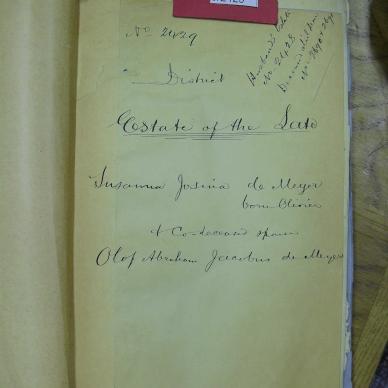 No 2429
Husband's Estate
No 2428
No 2690
District
Estate of the Late
Susanna Josina de Meyer
born Olivier
& Co-deceased spouse
Olof Abraham Jacobus de Meyer